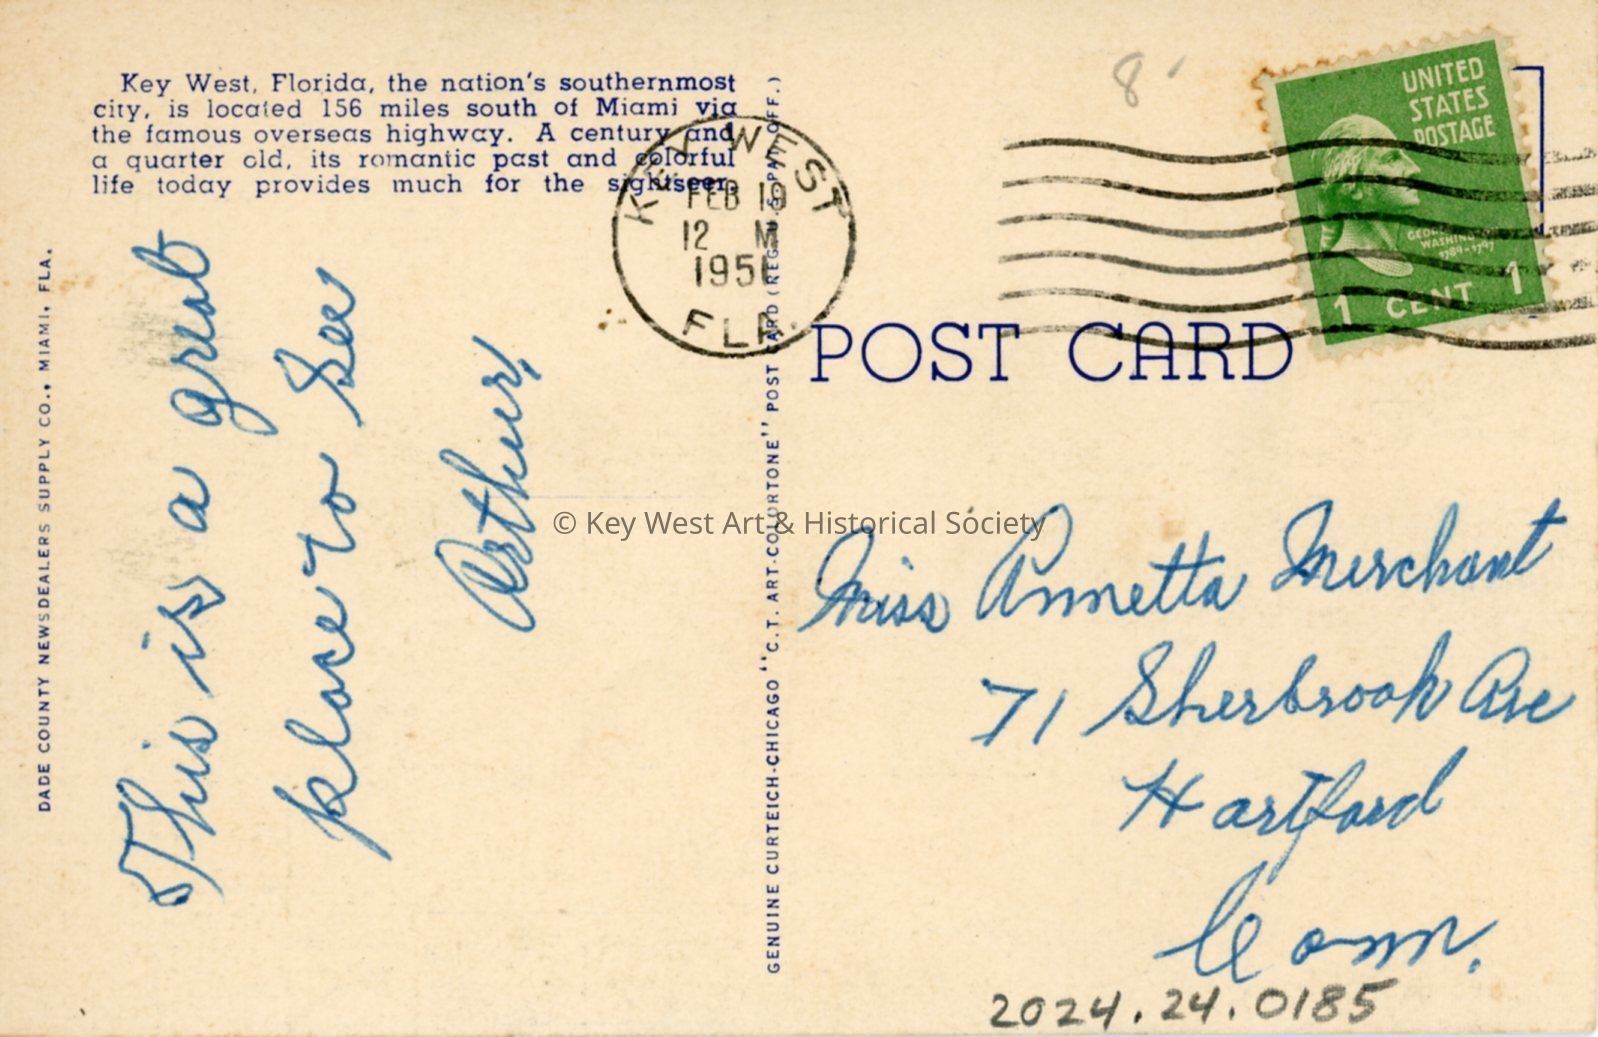 Key West, Florida, the nation's southernmost
city, is located 156 miles south of Miami via
the famous overseas highway. A century and
a quarter old, its romantic past and colorful
life today provides much for the sightseer.
DADE COUNTY NEWSDEALERS SUPPLY CO., MIAMI, FLA.
This is a great
place to see
Arthur,
GENUINE CURTEICH-CHICAGO "C.T. ART-COLORTONE" POST CARD (REG. U.S. PAT. OFF.)
KEY WEST
FEB 10
12 M
1951
FLA.
8
UNITED
STATES
POSTAGE
GEORGE
WASHINGTON
1789-1797
1 CENT 1
POST CARD
© Key West Art & Historical Society
Miss Annetta Merchant
71 Sherbrook Ave
Hartford
Conn.
2024.24.0185